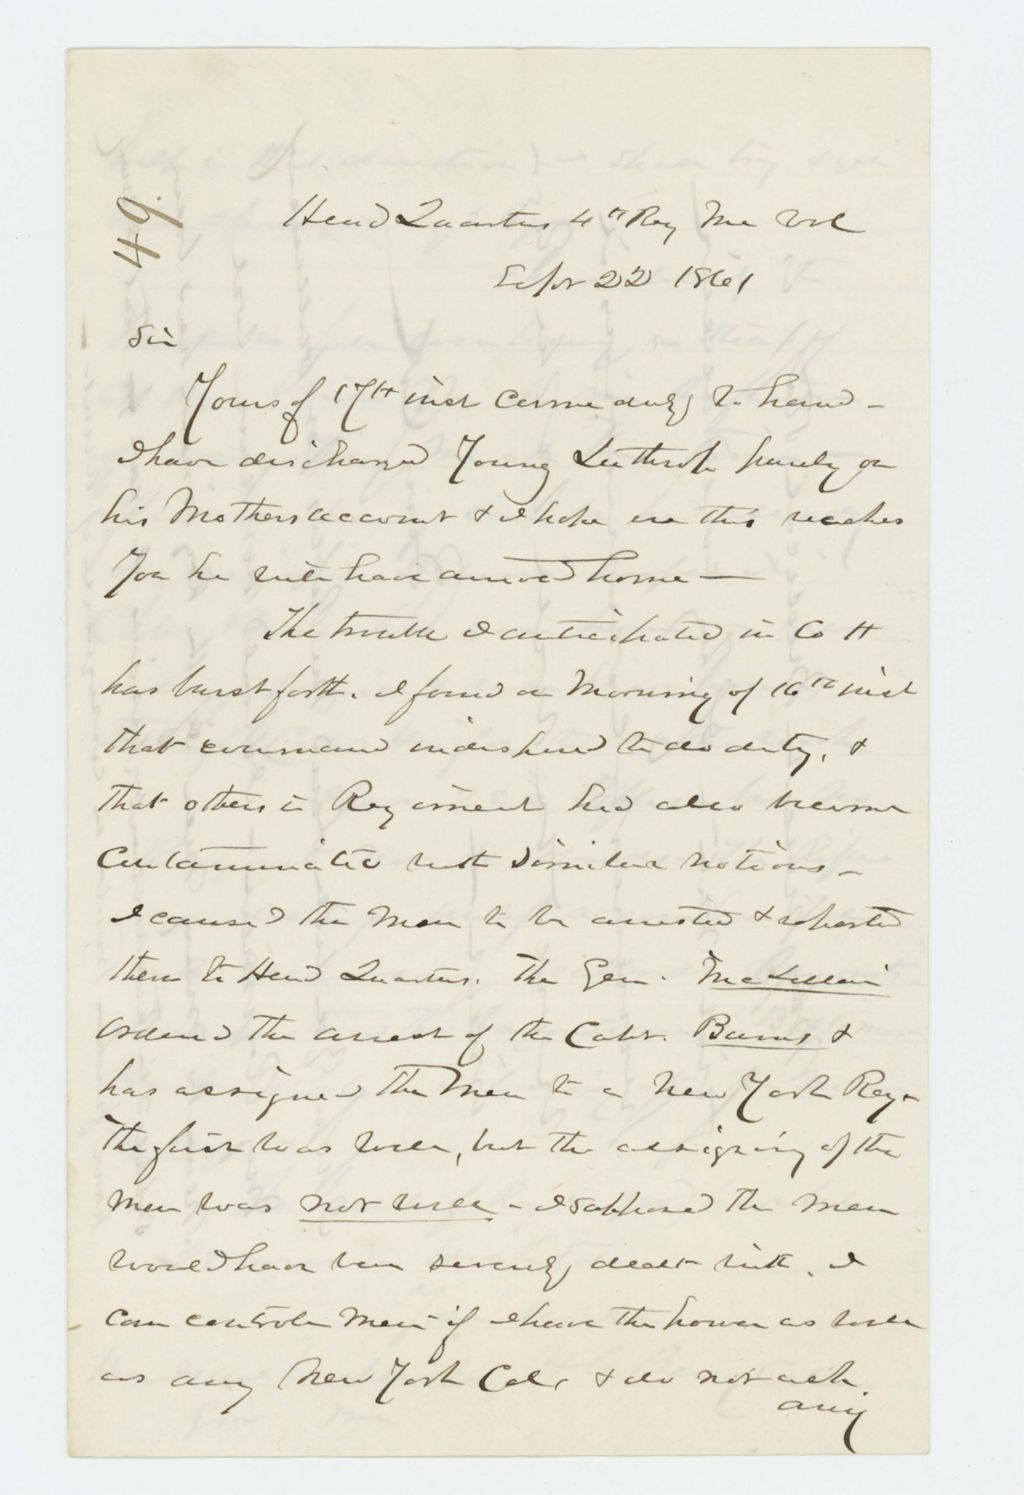 49.
Head Quarters 4th Reg Me Vol
Sepr 22 1861
Sir
Yours of 17th inst came duly to hand -
I have discharged Young Luthrop purely on
his Mothers account & I hope ere this reaches
You he will have arrived home —
The trouble I anticipated in Co H
has burst forth. I found on Morning of 16th inst
that command indisposed to do duty, &
that others in Regiment had also become
Contaminated with similar notions -
I caused the Men to be arrested & reported
them to Head Quarters. The Gen. McLellan
ordered the arrest of the Capt. Burns &
has assigned the Men to a New York Reg.
The first was well, but the assigning of the
Men was not well - I supposed the men
would have been severely dealt with. I
can controle Men if I have the power as well
as any New York Col, & do not ask
any